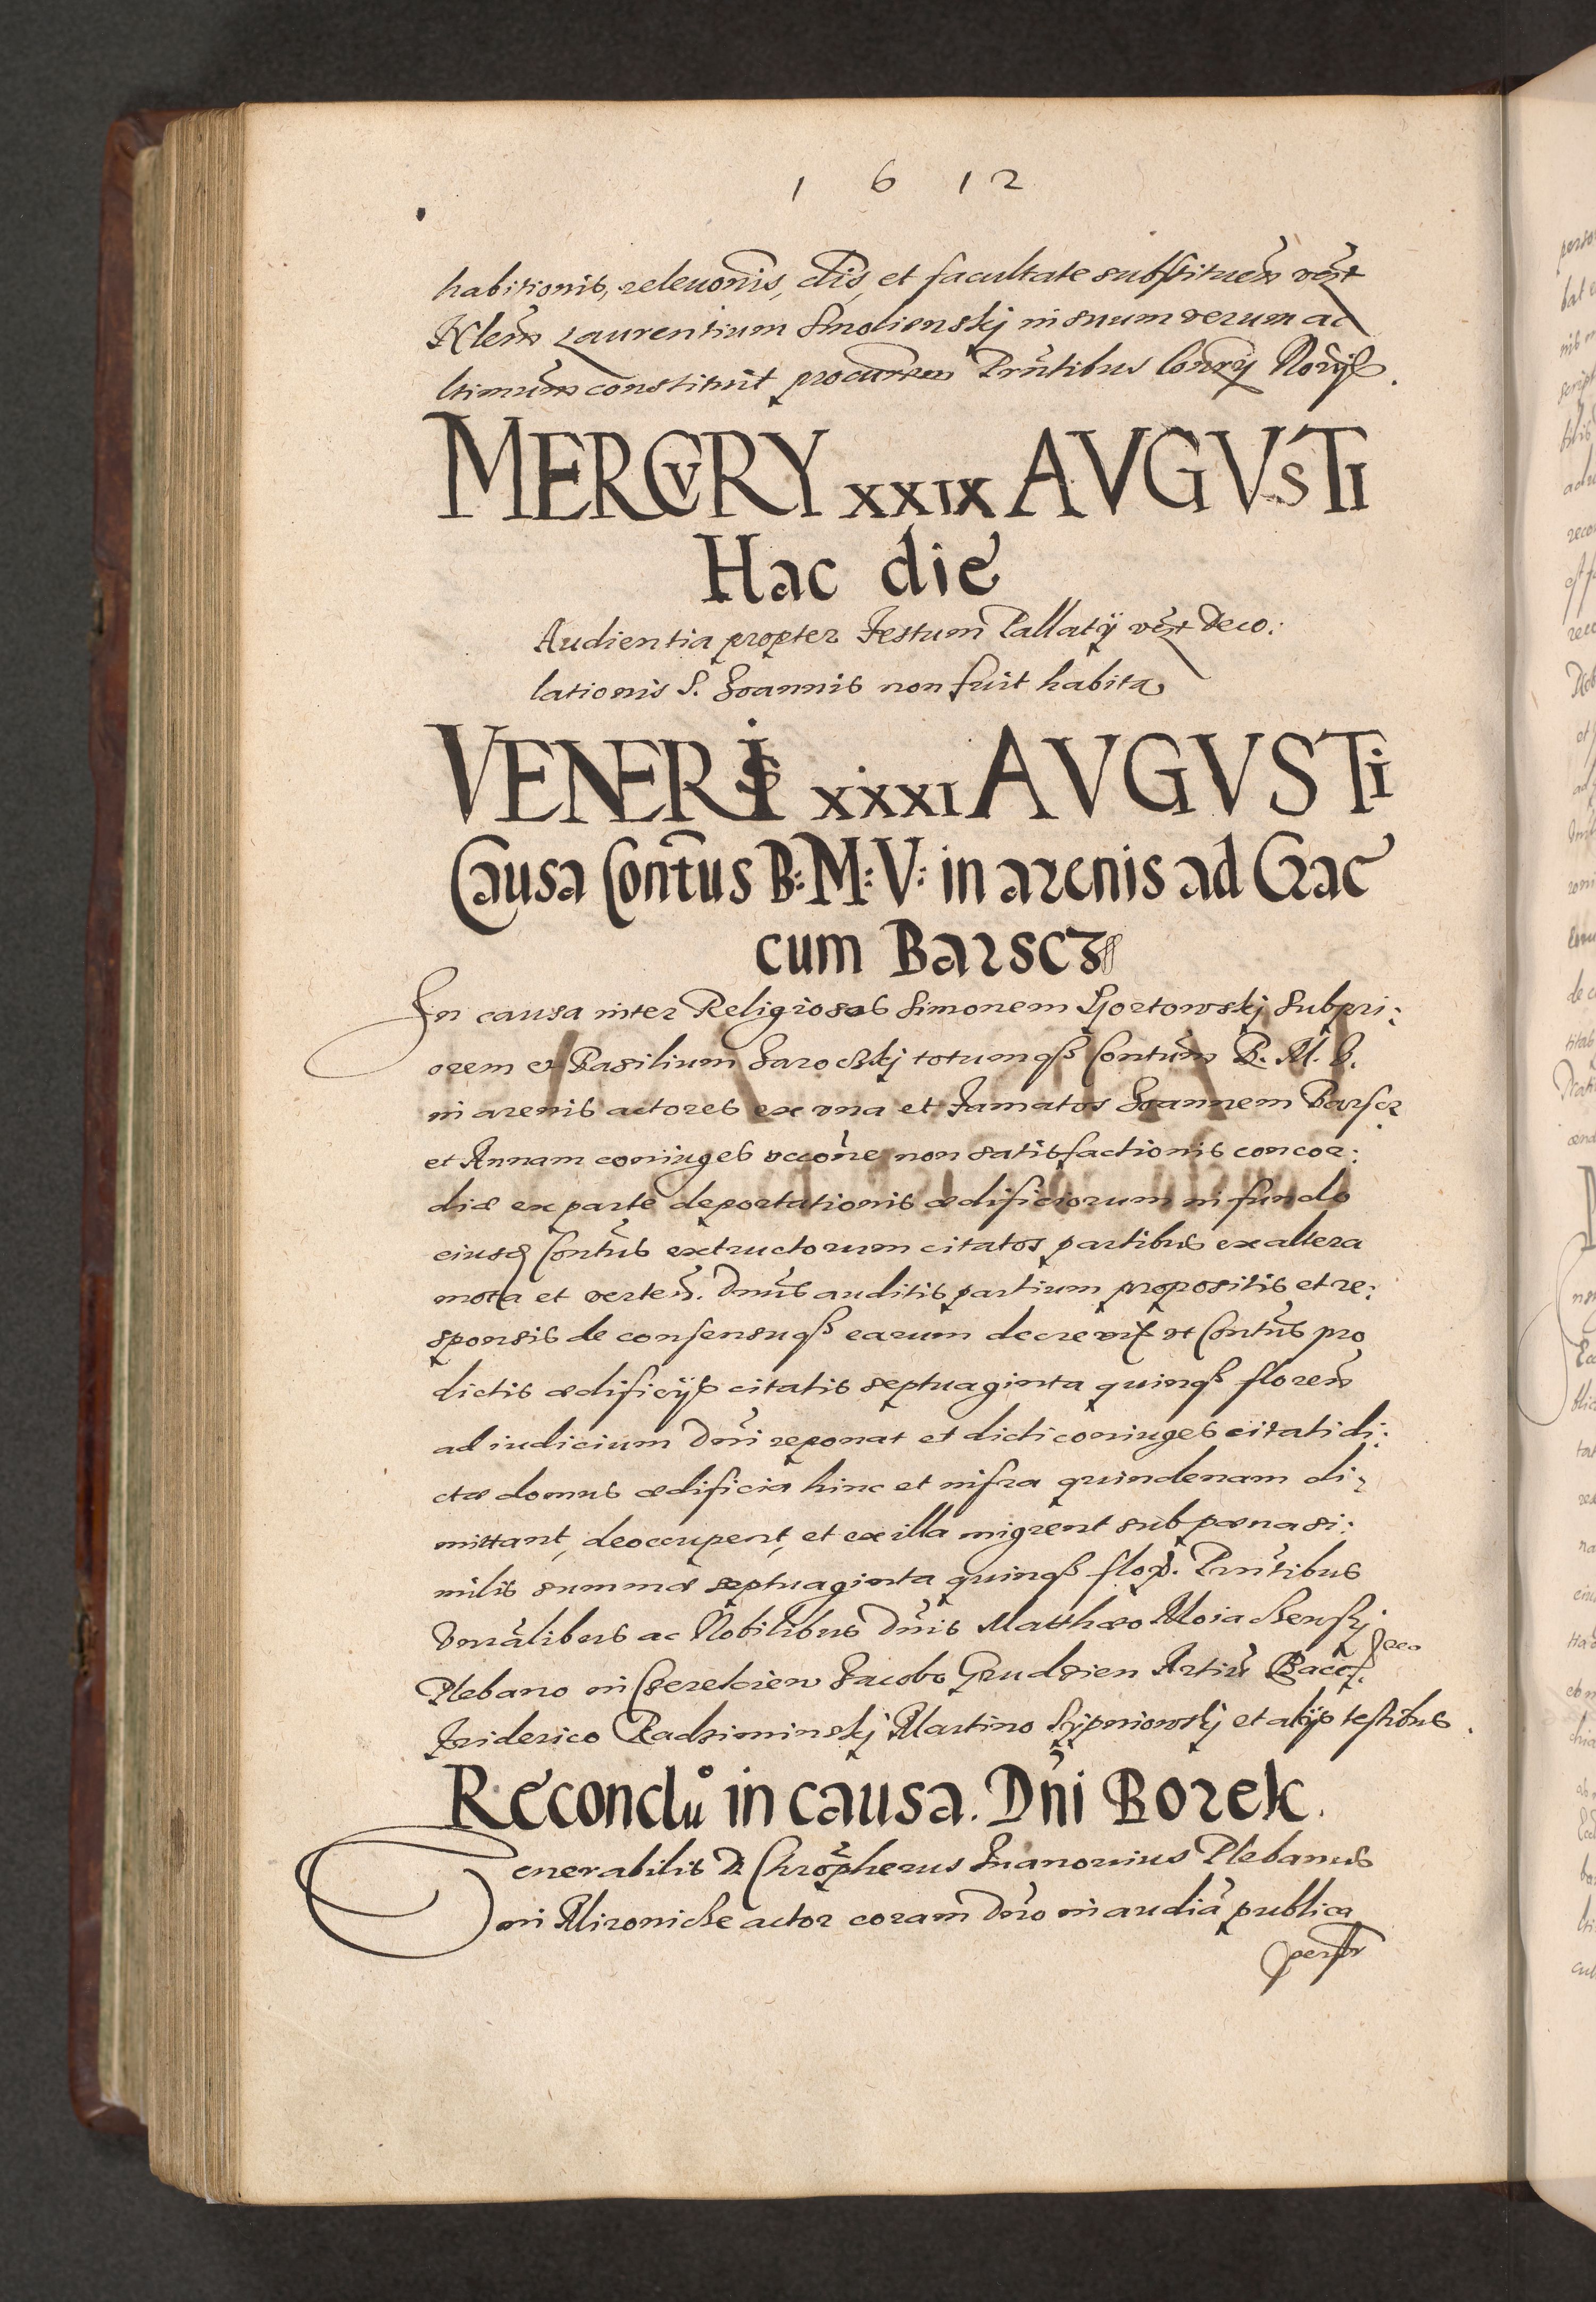 1 6 12
habitionis, releuõnis, clis, et facultate substituen̄ ver̃t
Laurentium Smolienskj in suum verum ac
ltimum̃ constituit procurem Prñtibus Conr̃y Norijs.
MERCVRY XXIX AVGVSTI
Hac die
Audientia propter Festum Pallatij ver̃t Deco:
lationis S. Joannis non fuit habita
VENERIS XXXI AVGVSTi
Causa Contũs B: M: V: in arenis ad Crac
cum Barscz
In causa inter Religiosos Simonem Gortowskj Subpri:
orem et Basilium Jarockj totumqß Contũm B. M. V.
in arenis actores ex vna et Famatos Joannem Barscz
et Annam coniuges occõne non satisfactionis concor:
diæ ex parte deportationis ædificiorum in fundo
eiusd Contũs extructorum citatos partibus ex altera
mota et verten̄. Dnũs auditis partium propositis et re:
sponsis de consensuqß earum decrevit vt Contũs pro
dictis ædificijs citatis septuaginta quinqß floren̄
ad iudicium Dnĩ reponat et dicti coniuges citati di:
ctæ domus ædificia hinc et infra quindenam di:
mittant, deoccupent, et ex illa migrent sub pæna si:
milis summæ septuaginta quinqß flor. Prñtibus
Vnrãlibus ac Nobilibus Dnĩs Matthæo
Plebano in Jacobo Grudzien Artiũ Bacc
Friderico Radziminskj Martino Sypniowskj et alijs testibus.
Reconclu° in causa. Dñi Borek.
Venerabilis D. Chrõpherus Iuanouius Plebanus
in Mironicze actor coram Dnõ in audiã publica
persr